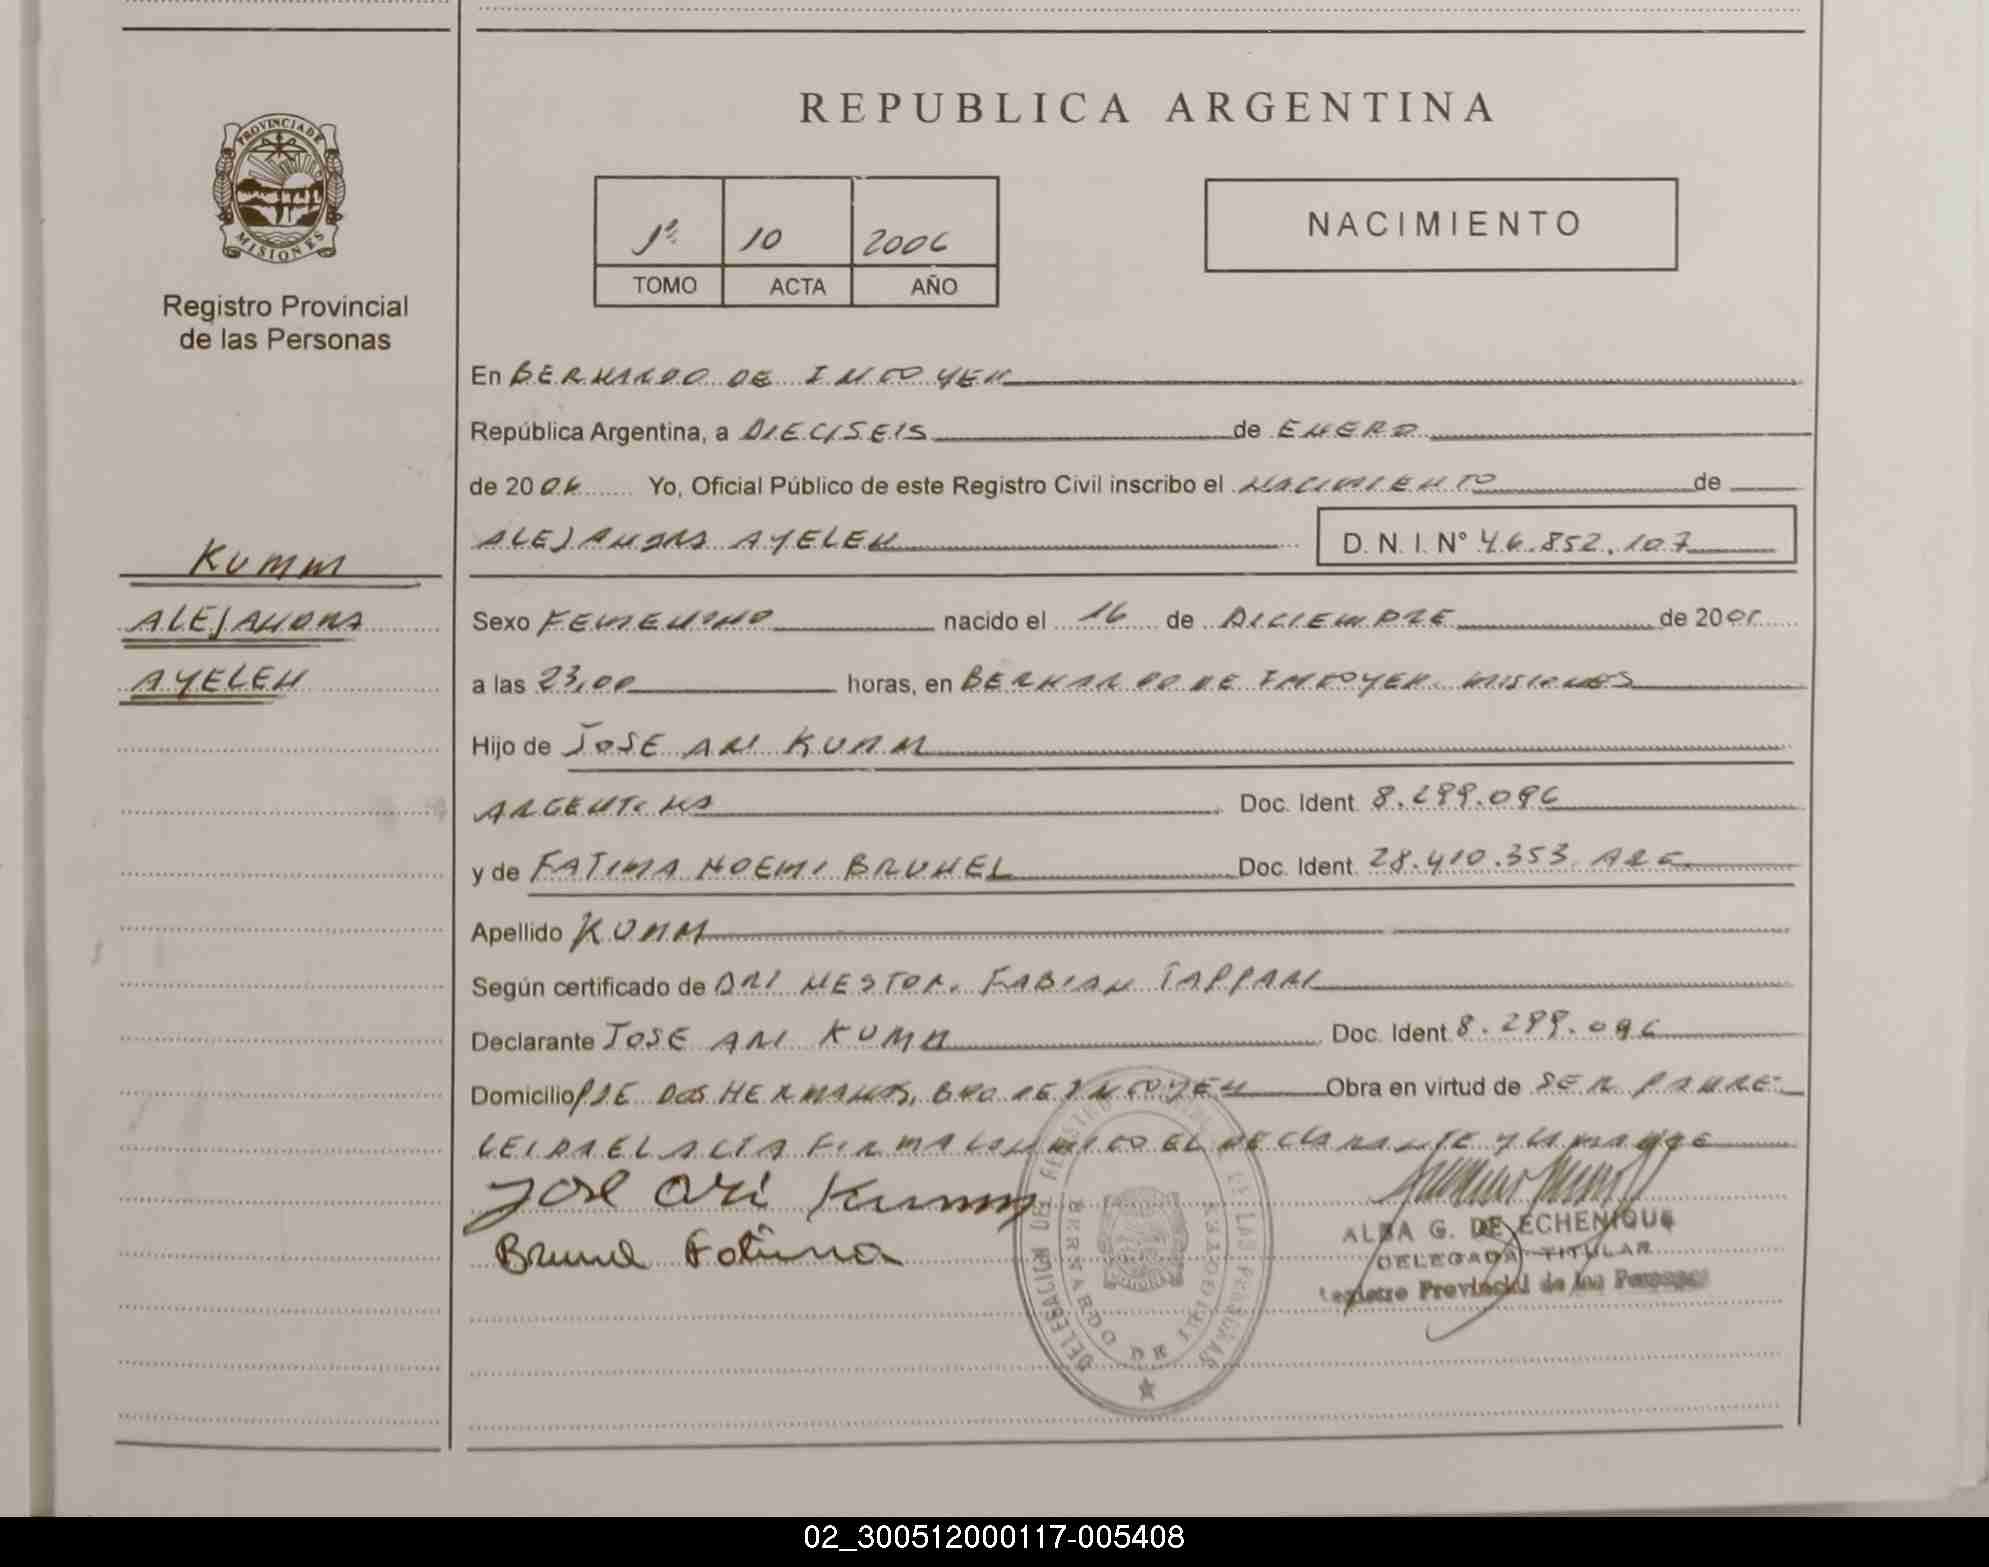 REPUBLICA ARGENTINA
PROVINCIA DE
MISIONES
Registro Provincial
de las Personas
1º 10 2006
TOMO ACTA AÑO
NACIMIENTO
En BERNARDO DE IRIGOYEN
República Argentina, a DIECISEIS de ENERO
de 2006 Yo, Oficial Público de este Registro Civil inscribo el NACIMIENTO de
ALEJANDRA AYELEN D. N. I. N° 46.852.107
KUMM
ALEJANDRA
AYELEN
Sexo FEMENINO nacido el 16 de DICIEMBRE de 2005
a las 23,00 horas, en BERNARDO DE IRIGOYEN. MISIONES
Hijo de JOSE ARI KUMM
ARGENTINO Doc. Ident. 8.299.096
y de FATIMA NOEMI BRUNEL Doc. Ident. 28.410.353 ARG.
Apellido KUMM
Según certificado de DR. NESTOR FABIAN TAPPARI
Declarante JOSE ARI KUMM Doc. Ident. 8.299.096
Domicilio PJE DOS HERMANAS, BDO DE IRIGOYEN Obra en virtud de SER PADRE
LEIDA EL ACTA FIRMA CONMIGO EL DECLARANTE Y LA MADRE
Jose Ari Kumm
Brunel Fatima
DELEGACION DEL REGISTRO PROVINCIAL DE LAS PERSONAS
BERNARDO DE IRIGOYEN
ALBA G. DE ECHENIQUE
DELEGADA TITULAR
Registro Provincial de las Personas
02_300512000117-005408